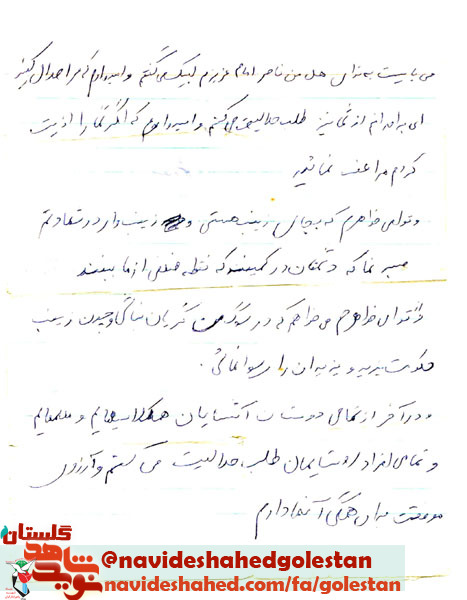 می بایست به ندای هل من ناصر امام عزیزم لبیک می گفتم و امیدوارم که مرا حلال کنید
ای برادرانم از شما نیز طلب حلالیت می کنم و امیدوارم که اگر شما را اذیت
کردم مرا عفو نمائید
و توای خواهرم که بجای زینب هستی و زینب وار در شهادتم
صبر نما که دشمنان در کمینند که نقطه ضعفی از ما ببینند
توای خواهرم می خواهم که در سوگ من گریان نباشی و چون زینب
حکومت یزید و یزیدیان را رسوا نمائی.
و در آخر از تمامی دوستان آشنایان همکلاسیهایم و معلمهایم
و تمامی افراد روستایمان طلب حلالیت می کنم و آرزوی
موفقیت برای همگی آنها دارم
گلستان
نوید شاهد
@navideshahedgolestan
navideshahed.com/fa/golestan